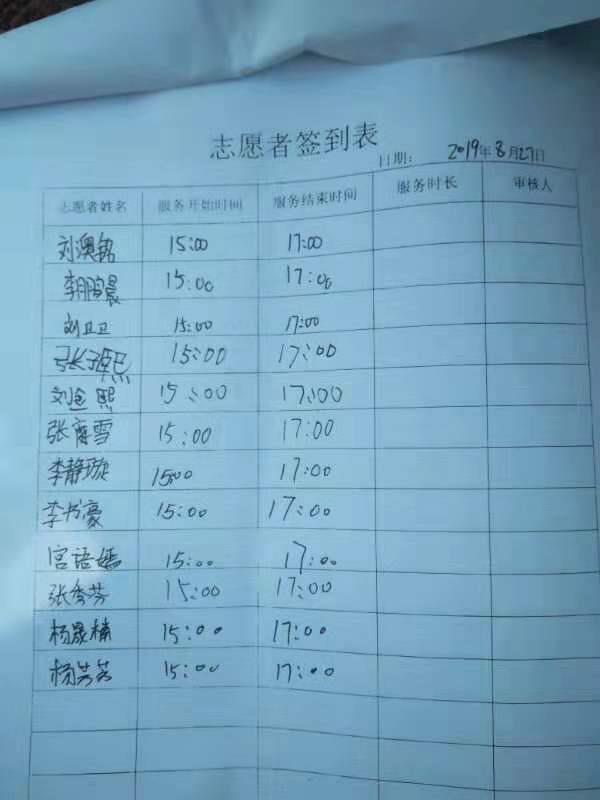 志愿者签到表
日期： 2019年8月27日
志愿者姓名 服务开始时间 服务结束时间 服务时长 审核人
刘澳铭 15:00 17:00
李鹏晨 15:00 17:00
刘卫卫 15:00 17:00
张子熙 15:00 17:00
刘 熙 15:00 17:00
张 雪 15:00 17:00
李静璇 15:00 17:00
李书豪 15:00 17:00
宫语嫣 15:00 17:00
张秀芬 15:00 17:00
杨晟楠 15:00 17:00
杨芳芳 15:00 17:00